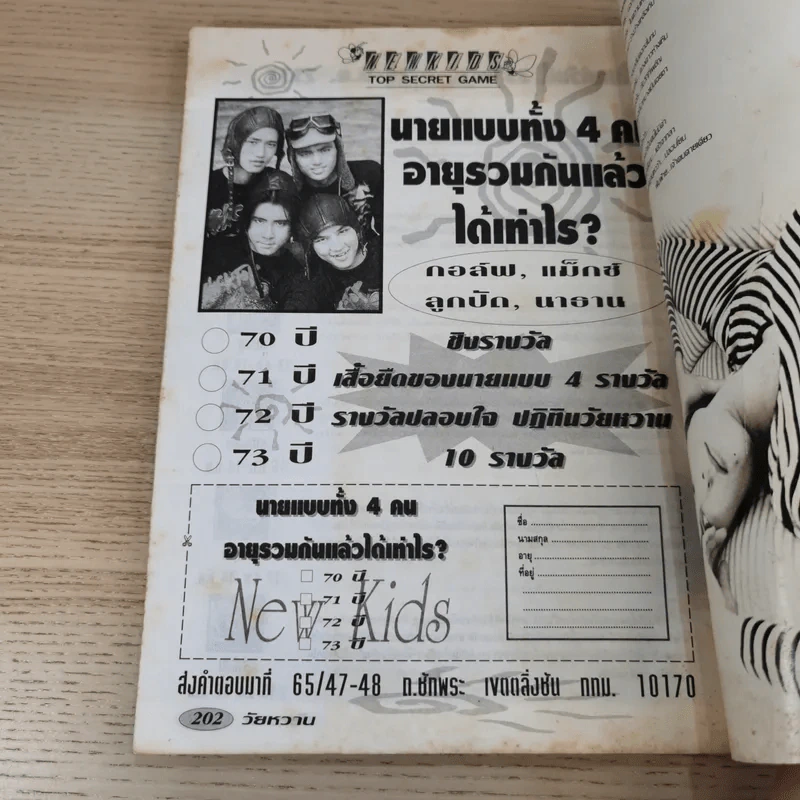 NEWKIDS
TOP SECRET GAME
นายแบบทั้ง 4 ค
อายุรวมกันแล้ว
ได้เท่าไร?
กอล์ฟ, แม็กซ์
ลูกปัด, นาธาน
70 ปี
71 ปี
72 ปี
73 ปี
ชิงรางวัล
เสื้อยืดของนายแบบ 4 รางวัล
รางวัลปลอบใจ ปฏิทินวัยหวาน
10 รางวัล
นายแบบทั้ง 4 คน
อายุรวมกันแล้วได้เท่าไร?
70 ปี
71 ปี
72 ปี
73 ปี
New Kids
ชื่อ
นามสกุล
อายุ
ที่อยู่
ส่งคำตอบมาที่ 65/47-48 ถ.ชักพระ เขตตลิ่งชัน กทม. 10170
202 วัยหวาน